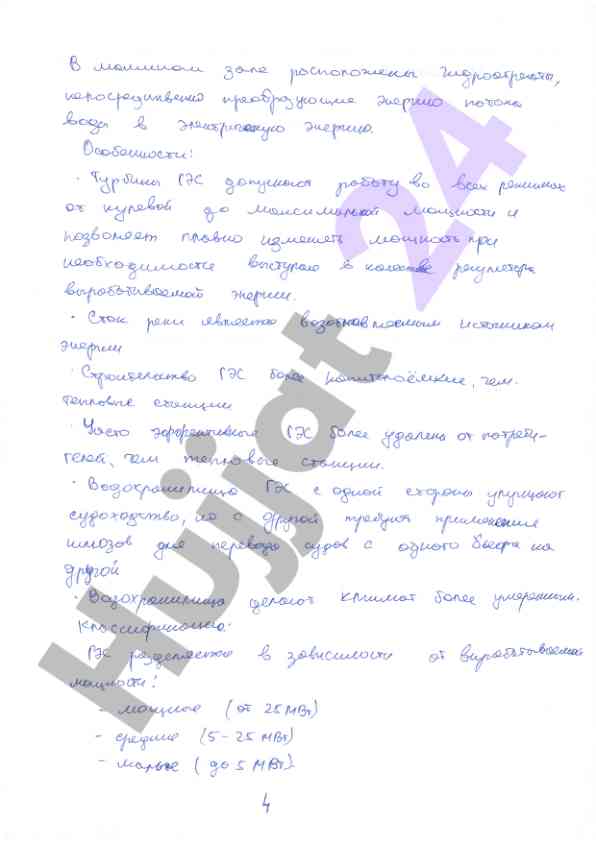 В машинном зале расположены гидроагрегаты,
непосредственно преобразующие энергию потока
воды в электрическую энергию.
Особенности:
· Турбины ГЭС допускают работу во всех режимах
от нулевой до максимальной мощности и
позволяет плавно изменять мощность при
необходимости выступая в качестве регулятора
вырабатываемой энергии.
· Сток реки является возобновляемым источником
энергии
· Строительство ГЭС более капиталоёмкие, чем
тепловые станции
· Часто эффективные ГЭС более удалены от потреби-
телей, чем тепловые станции.
· Водохранилища ГЭС с одной стороны улучшают
судоходство, но с другой требуют применение
шлюзов для перевода судов с одного бьефа на
другой
· Водохранилища делают климат более умеренным.
Классификация:
ГЭС разделяются в зависимости от вырабатываемой
мощности:
- мощные (от 25 МВт)
- средние (5-25 МВт)
- малые (до 5 МВт)
4
Hujjat 24